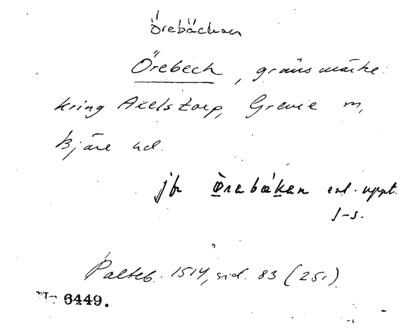 Örebäcken
Örebech, gränsmärke
kring Axelstorp, Grevie m,
Bjäre hd.
jfr Örebäken enl. uppt.
1-s.
Palteb. 1514, sid. 83 (251)
6449.